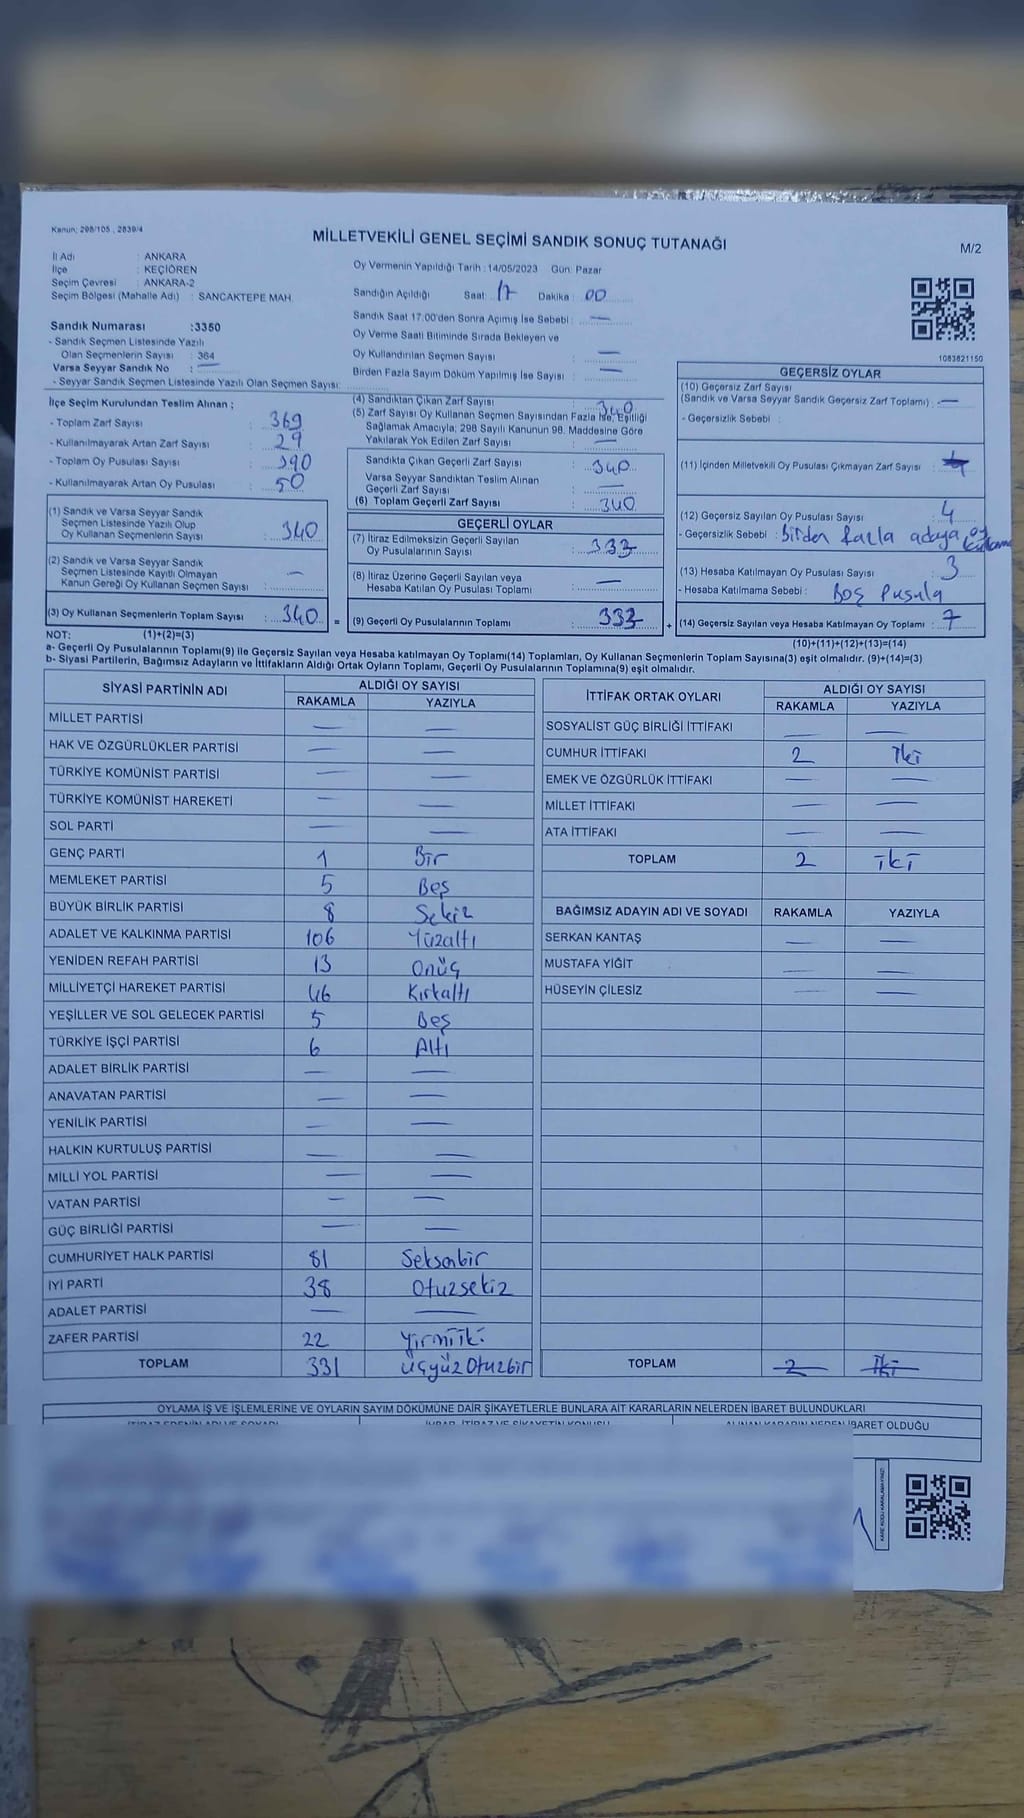 Kanun; 298/105 , 2839/4
MİLLETVEKİLİ GENEL SEÇİMİ SANDIK SONUÇ TUTANAĞI
M/2
İl Adı : ANKARA
İlçe : KEÇİÖREN
Seçim Çevresi : ANKARA-2
Seçim Bölgesi (Mahalle Adı) : SANCAKTEPE MAH.
Oy Vermenin Yapıldığı Tarih : 14/05/2023 Gün: Pazar
Sandığın Açıldığı Saat : 17 Dakika : 00
Sandık Saat 17:00'den Sonra Açımış İse Sebebi : —
Oy Verme Saati Bitiminde Sırada Bekleyen ve
Oy Kullandırılan Seçmen Sayısı : —
Birden Fazla Sayım Döküm Yapılmış İse Sayısı : —
Sandık Numarası :3350
- Sandık Seçmen Listesinde Yazılı
Olan Seçmenlerin Sayısı : 364
Varsa Seyyar Sandık No : —
- Seyyar Sandık Seçmen Listesinde Yazılı Olan Seçmen Sayısı:
1083821150
İlçe Seçim Kurulundan Teslim Alınan ;
- Toplam Zarf Sayısı : 369
- Kullanılmayarak Artan Zarf Sayısı : 29
- Toplam Oy Pusulası Sayısı : 390
- Kullanılmayarak Artan Oy Pusulası : 50
(1) Sandık ve Varsa Seyyar Sandık
Seçmen Listesinde Yazılı Olup
Oy Kullanan Seçmenlerin Sayısı : 340
(2) Sandık ve Varsa Seyyar Sandık
Seçmen Listesinde Kayıtlı Olmayan
Kanun Gereği Oy Kullanan Seçmen Sayısı : —
(3) Oy Kullanan Seçmenlerin Toplam Sayısı : 340 =
(4) Sandıktan Çıkan Zarf Sayısı : 340
(5) Zarf Sayısı Oy Kullanan Seçmen Sayısından Fazla İse, Eşitliği
Sağlamak Amacıyla; 298 Sayılı Kanunun 98. Maddesine Göre
Yakılarak Yok Edilen Zarf Sayısı : —
Sandıkta Çıkan Geçerli Zarf Sayısı : 340
Varsa Seyyar Sandıktan Teslim Alınan
Geçerli Zarf Sayısı : —
(6) Toplam Geçerli Zarf Sayısı : 340
GEÇERLİ OYLAR
(7) İtiraz Edilmeksizin Geçerli Sayılan
Oy Pusulalarının Sayısı : 333
(8) İtiraz Üzerine Geçerli Sayılan veya
Hesaba Katılan Oy Pusulası Toplamı : —
(9) Geçerli Oy Pusulalarının Toplamı : 333 +
GEÇERSİZ OYLAR
(10) Geçersiz Zarf Sayısı
(Sandık ve Varsa Seyyar Sandık Geçersiz Zarf Toplamı) : —
- Geçersizlik Sebebi :
(11) İçinden Milletvekili Oy Pusulası Çıkmayan Zarf Sayısı :
(12) Geçersiz Sayılan Oy Pusulası Sayısı : 4
- Geçersizlik Sebebi : birden fazla adaya oy
(13) Hesaba Katılmayan Oy Pusulası Sayısı : 3
- Hesaba Katılmama Sebebi : Boş Pusula
(14) Geçersiz Sayılan veya Hesaba Katılmayan Oy Toplamı : 7
NOT: (1)+(2)=(3) (10)+(11)+(12)+(13)=(14)
a- Geçerli Oy Pusulalarının Toplamı(9) ile Geçersiz Sayılan veya Hesaba katılmayan Oy Toplamı(14) Toplamları, Oy Kullanan Seçmenlerin Toplam Sayısına(3) eşit olmalıdır. (9)+(14)=(3)
b- Siyasi Partilerin, Bağımsız Adayların ve İttifakların Aldığı Ortak Oyların Toplamı, Geçerli Oy Pusulalarının Toplamına(9) eşit olmalıdır.
SİYASİ PARTİNİN ADI ALDIĞI OY SAYISI
RAKAMLA YAZIYLA
MİLLET PARTİSİ — —
HAK VE ÖZGÜRLÜKLER PARTİSİ — —
TÜRKİYE KOMÜNİST PARTİSİ — —
TÜRKİYE KOMÜNİST HAREKETİ — —
SOL PARTİ — —
GENÇ PARTİ 1 Bir
MEMLEKET PARTİSİ 5 Beş
BÜYÜK BİRLİK PARTİSİ 8 Sekiz
ADALET VE KALKINMA PARTİSİ 106 Yüzaltı
YENİDEN REFAH PARTİSİ 13 Onüç
MİLLİYETÇİ HAREKET PARTİSİ 46 Kırkaltı
YEŞİLLER VE SOL GELECEK PARTİSİ 5 Beş
TÜRKİYE İŞÇİ PARTİSİ 6 Altı
ADALET BİRLİK PARTİSİ — —
ANAVATAN PARTİSİ — —
YENİLİK PARTİSİ — —
HALKIN KURTULUŞ PARTİSİ — —
MİLLİ YOL PARTİSİ — —
VATAN PARTİSİ — —
GÜÇ BİRLİĞİ PARTİSİ — —
CUMHURİYET HALK PARTİSİ 81 Seksenbir
İYİ PARTİ 38 Otuzsekiz
ADALET PARTİSİ — —
ZAFER PARTİSİ 22 Yirmiiki
TOPLAM 331 Üçyüz Otuzbir
İTTİFAK ORTAK OYLARI ALDIĞI OY SAYISI
RAKAMLA YAZIYLA
SOSYALİST GÜÇ BİRLİĞİ İTTİFAKI — —
CUMHUR İTTİFAKI 2 İki
EMEK VE ÖZGÜRLÜK İTTİFAKI — —
MİLLET İTTİFAKI — —
ATA İTTİFAKI — —
TOPLAM 2 iki
BAĞIMSIZ ADAYIN ADI VE SOYADI RAKAMLA YAZIYLA
SERKAN KANTAŞ — —
MUSTAFA YİĞİT — —
HÜSEYİN ÇİLESİZ — —
TOPLAM 2 iki
OYLAMA İŞ VE İŞLEMLERİNE VE OYLARIN SAYIM DÖKÜMÜNE DAİR ŞİKAYETLERLE BUNLARA AİT KARARLARIN NELERDEN İBARET BULUNDUKLARI
İTİRAZ EDENİN ADI VE SOYADI İHBAR, İTİRAZ VE ŞİKAYETİN KONUSU ALINAN KARARIN NEDEN İBARET OLDUĞU
KARE KODU KARALAMAYINIZ!